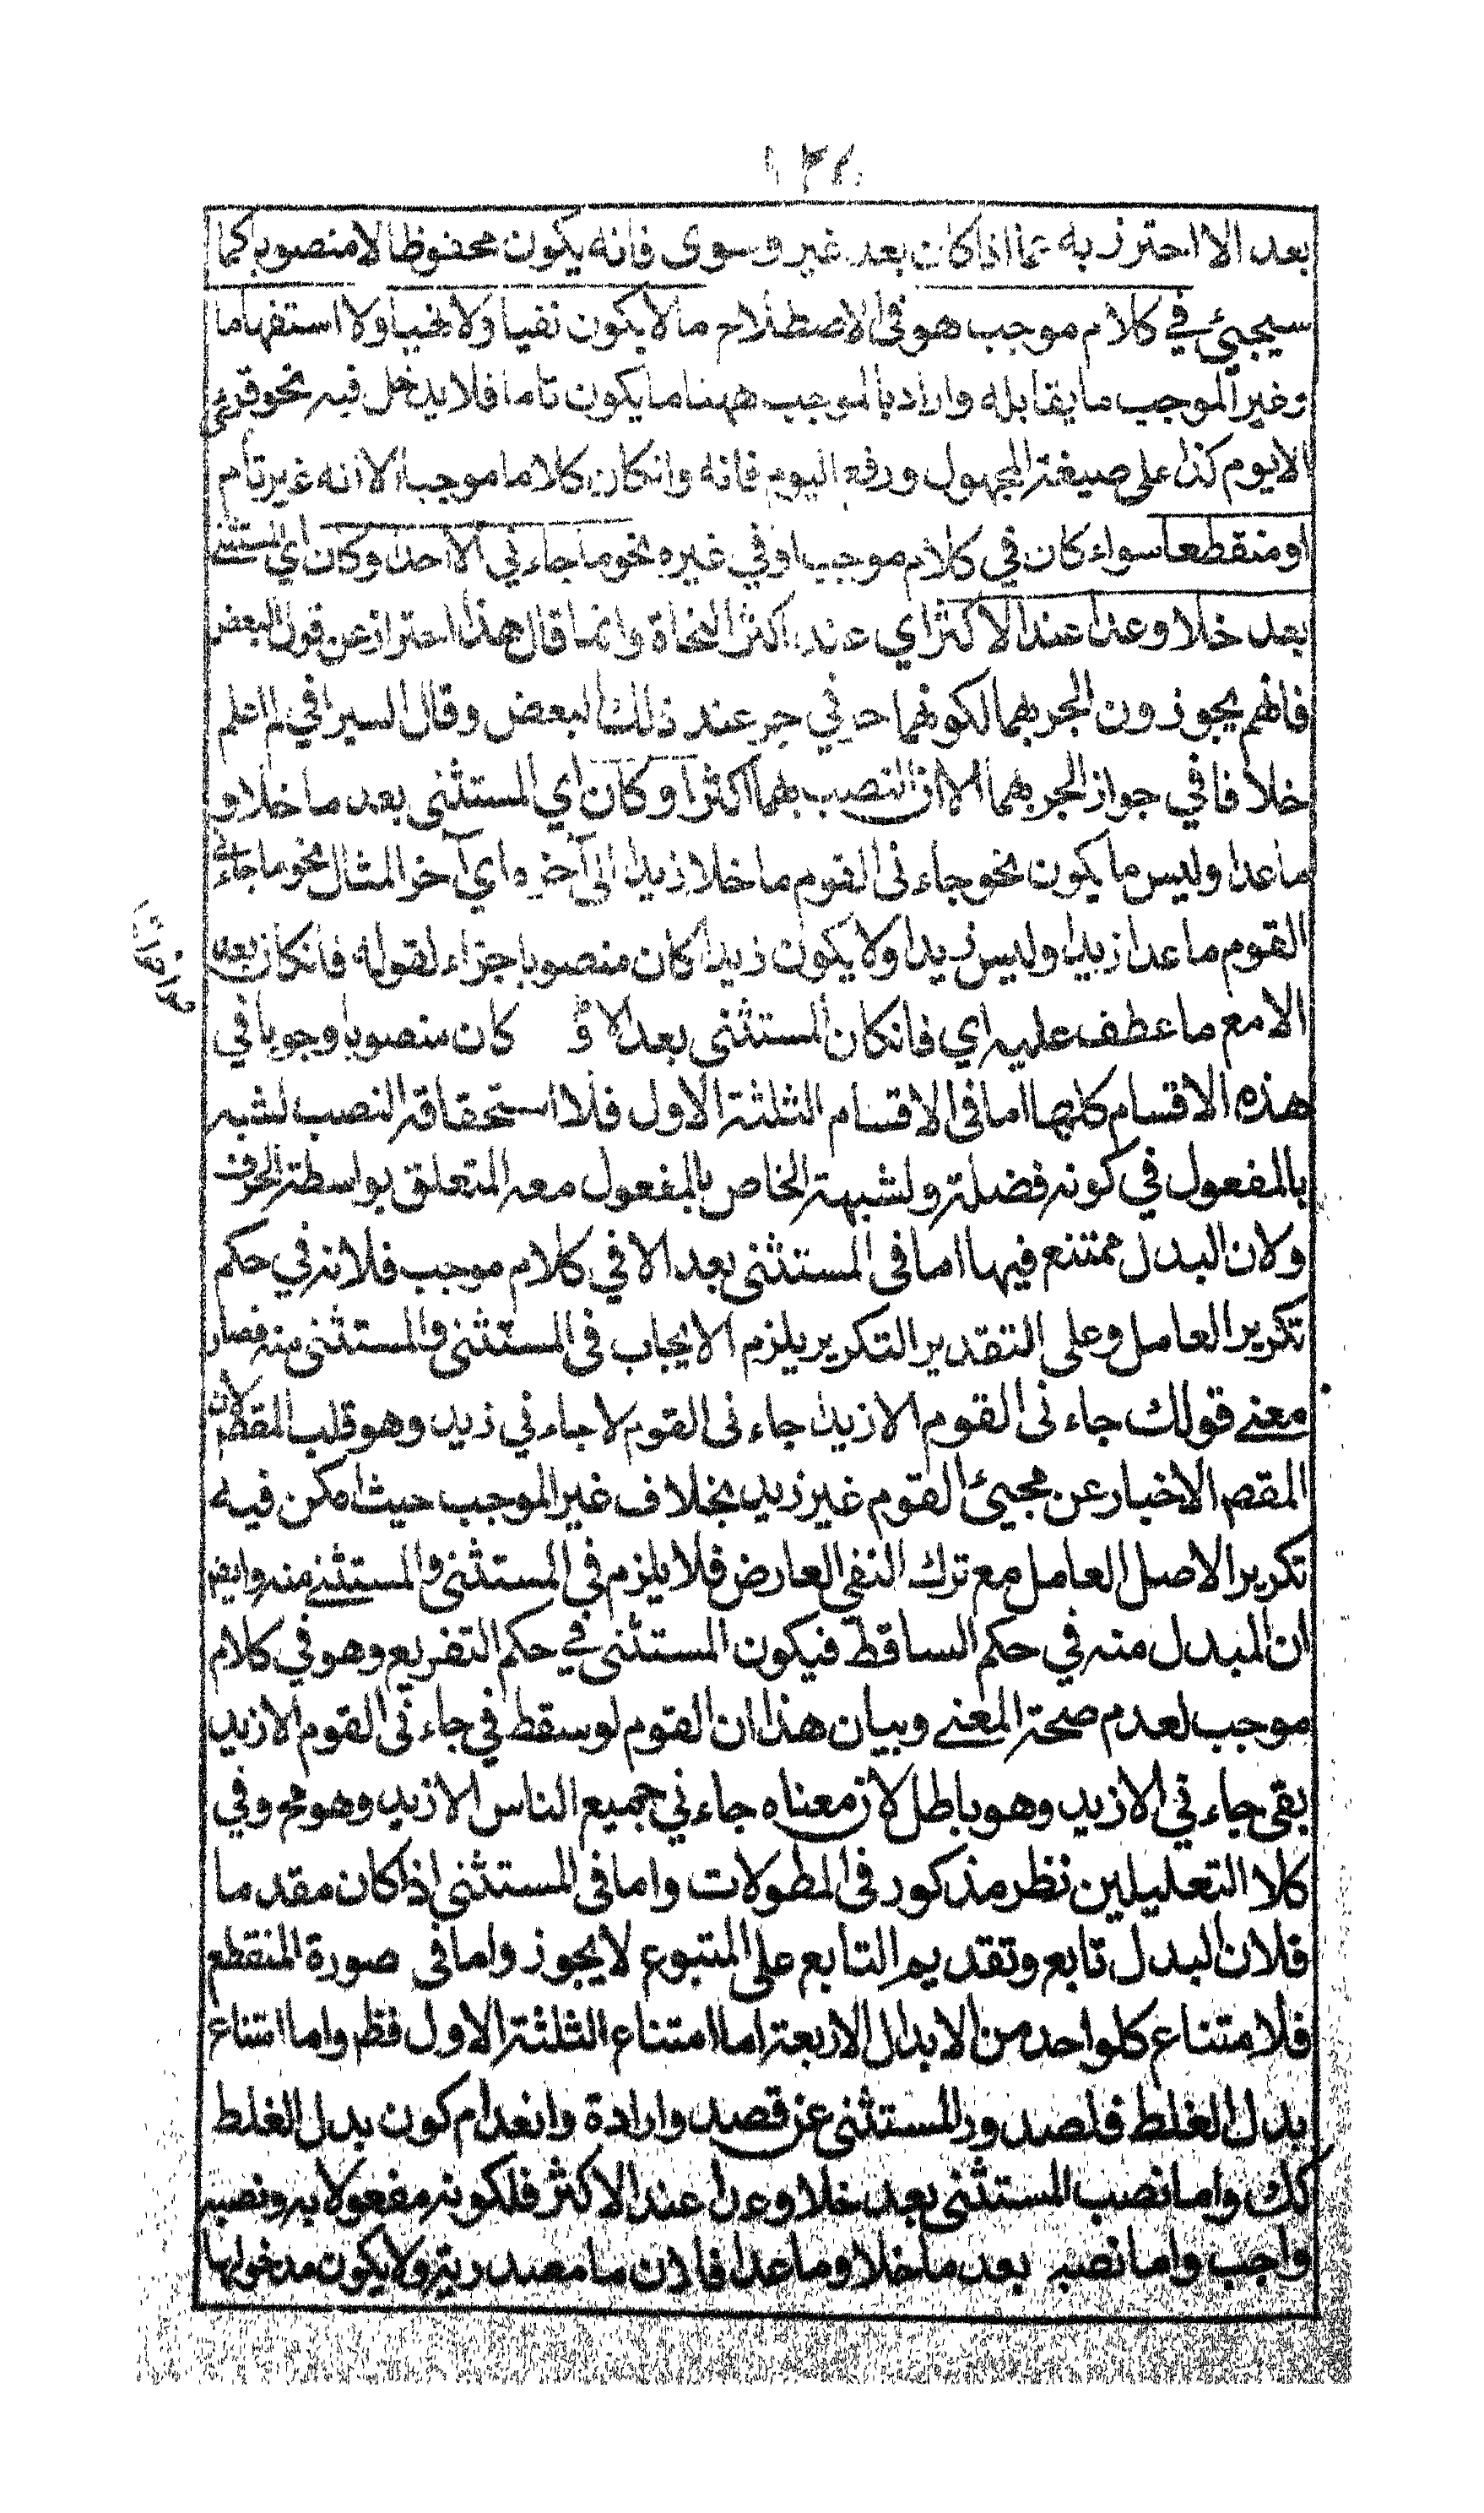 بعد الا احترز به عما اذا كان بعد غير وسوى فانه يكون محفوظا لا منصوبا كما
سيجيئ في كلام موجب هو فى الاصطلاح ما لا يكون نفيا ولا نهيا ولا استفهاما
وغير الموجب ما يقابله واراد بالموجب ههنا ما يكون تاما فلا يدخل فيه نحو قرئ
الا يوم كذا على صيغة المجهول ورفع اليوم فانه وانكان كلاما موجبا الا انه غير تام
او منقطعا سواء كان في كلام موجب او في غيره نحو ما جاء ني الا احدا وكان اي المستثنى
بعد خلا وعدا عند الاكثر اي عند اكثر النحاة وانما قال هذا احتراز عن قول البعض
فانهم يجوزون الجر بهما لكونهما حرفي جر عند ذلك البعض وقال السيرافي لم اعلم
خلافا في جواز الجر بهما الا ان النصب بهما اكثر او كان اي المستثنى بعد ما خلا و
ما عدا وليس ما يكون نحو جاء نى القوم ما خلا زيدا الى آخره اي آخر المثال نحو ما جاءني
القوم ما عدا زيدا وليس زيدا ولا يكون زيدا كان منصوبا جزاء لقوله فانكان بعد
الا مع ما عطف عليه اي فانكان المستثنى بعد الا و كان منصوبا وجوبا في
هذه الاقسام كلها اما فى الاقسام الثلثة الاول فلا استحقاقه النصب لشبه
بالمفعول في كونه فضلة ولشبهة الخاص بالمفعول معه المتعلق بواسطة الحرف
ولان البدل ممتنع فيها اما فى المستثنى بعد الا في كلام موجب فلانه في حكم
تكرير العامل وعلى التقدير التكرير يلزم الايجاب فى المستثنى والمستثنى منه فصار
معنى قولك جاء نى القوم الا زيدا جاء نى القوم لا جاء ني زيد وهو قلب المقصم لان
المقصم الاخبار عن مجيئ القوم غير زيد بخلاف غير الموجب حيث امكن فيه
تكرير الاصل العامل مع ترك النفى العارض فلا يلزم فى المستثنى والمستثنى منه وايضا
ان المبدل منه في حكم الساقط فيكون المستثنى في حكم التفريع وهو في كلام
موجب لعدم صحة المعنى وبيان هذا ان القوم لو سقط في جاء نى القوم الا زيد
بقى جاء ني الا زيد وهو باطل لان معناه جاء ني جميع الناس الا زيد وهو مح وفي
كلا التعليلين نظر مذكور فى المطولات واما فى المستثنى اذا كان مقدما
فلان البدل تابع وتقديم التابع على المتبوع لا يجوز واما فى صورة المنقطع
فلا متناع كلواحد من الابدال الاربعة اما امتناع الثلثة الاول فظ واما امتناع
بدل الغلط فلصدور المستثنى عن قصد وارادة وانعدام كون بدل الغلط
كك واما نصب المستثنى بعد خلا وعدا عند الاكثر فلكونه مفعولا به ونصبه
واجب واما نصبه بعد ما خلا وما عدا فلان ما مصدرية ولا يكون مدخولها